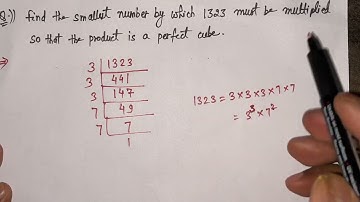 Q:)) find the smallest number by which 1323 must be multiplied
so that the product is a perfect cube.
3 | 1323
3 | 441
3 | 147
7 | 49
7 | 7
1
1323 = 3×3×3×7×7
= 3³×7²